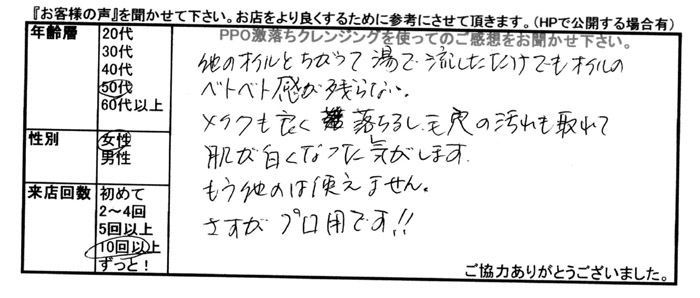 『お客様の声』を聞かせて下さい。お店をより良くするために参考にさせて頂きます。(HPで公開する場合有)
年齢層
20代
30代
40代
50代
60代以上
性別
女性
男性
来店回数
初めて
2～4回
5回以上
10回以上
ずっと！
PPO激落ちクレンジングを使ってのご感想をお聞かせ下さい。
他のオイルとちがって湯で流しただけでもオイルの
ベトベト感が残らない。
メイクも良く落ちるし、毛穴の汚れも取れて
肌が白くなった気がします。
もう他のは使えません。
さすがプロ用です!!
ご協力ありがとうございました。